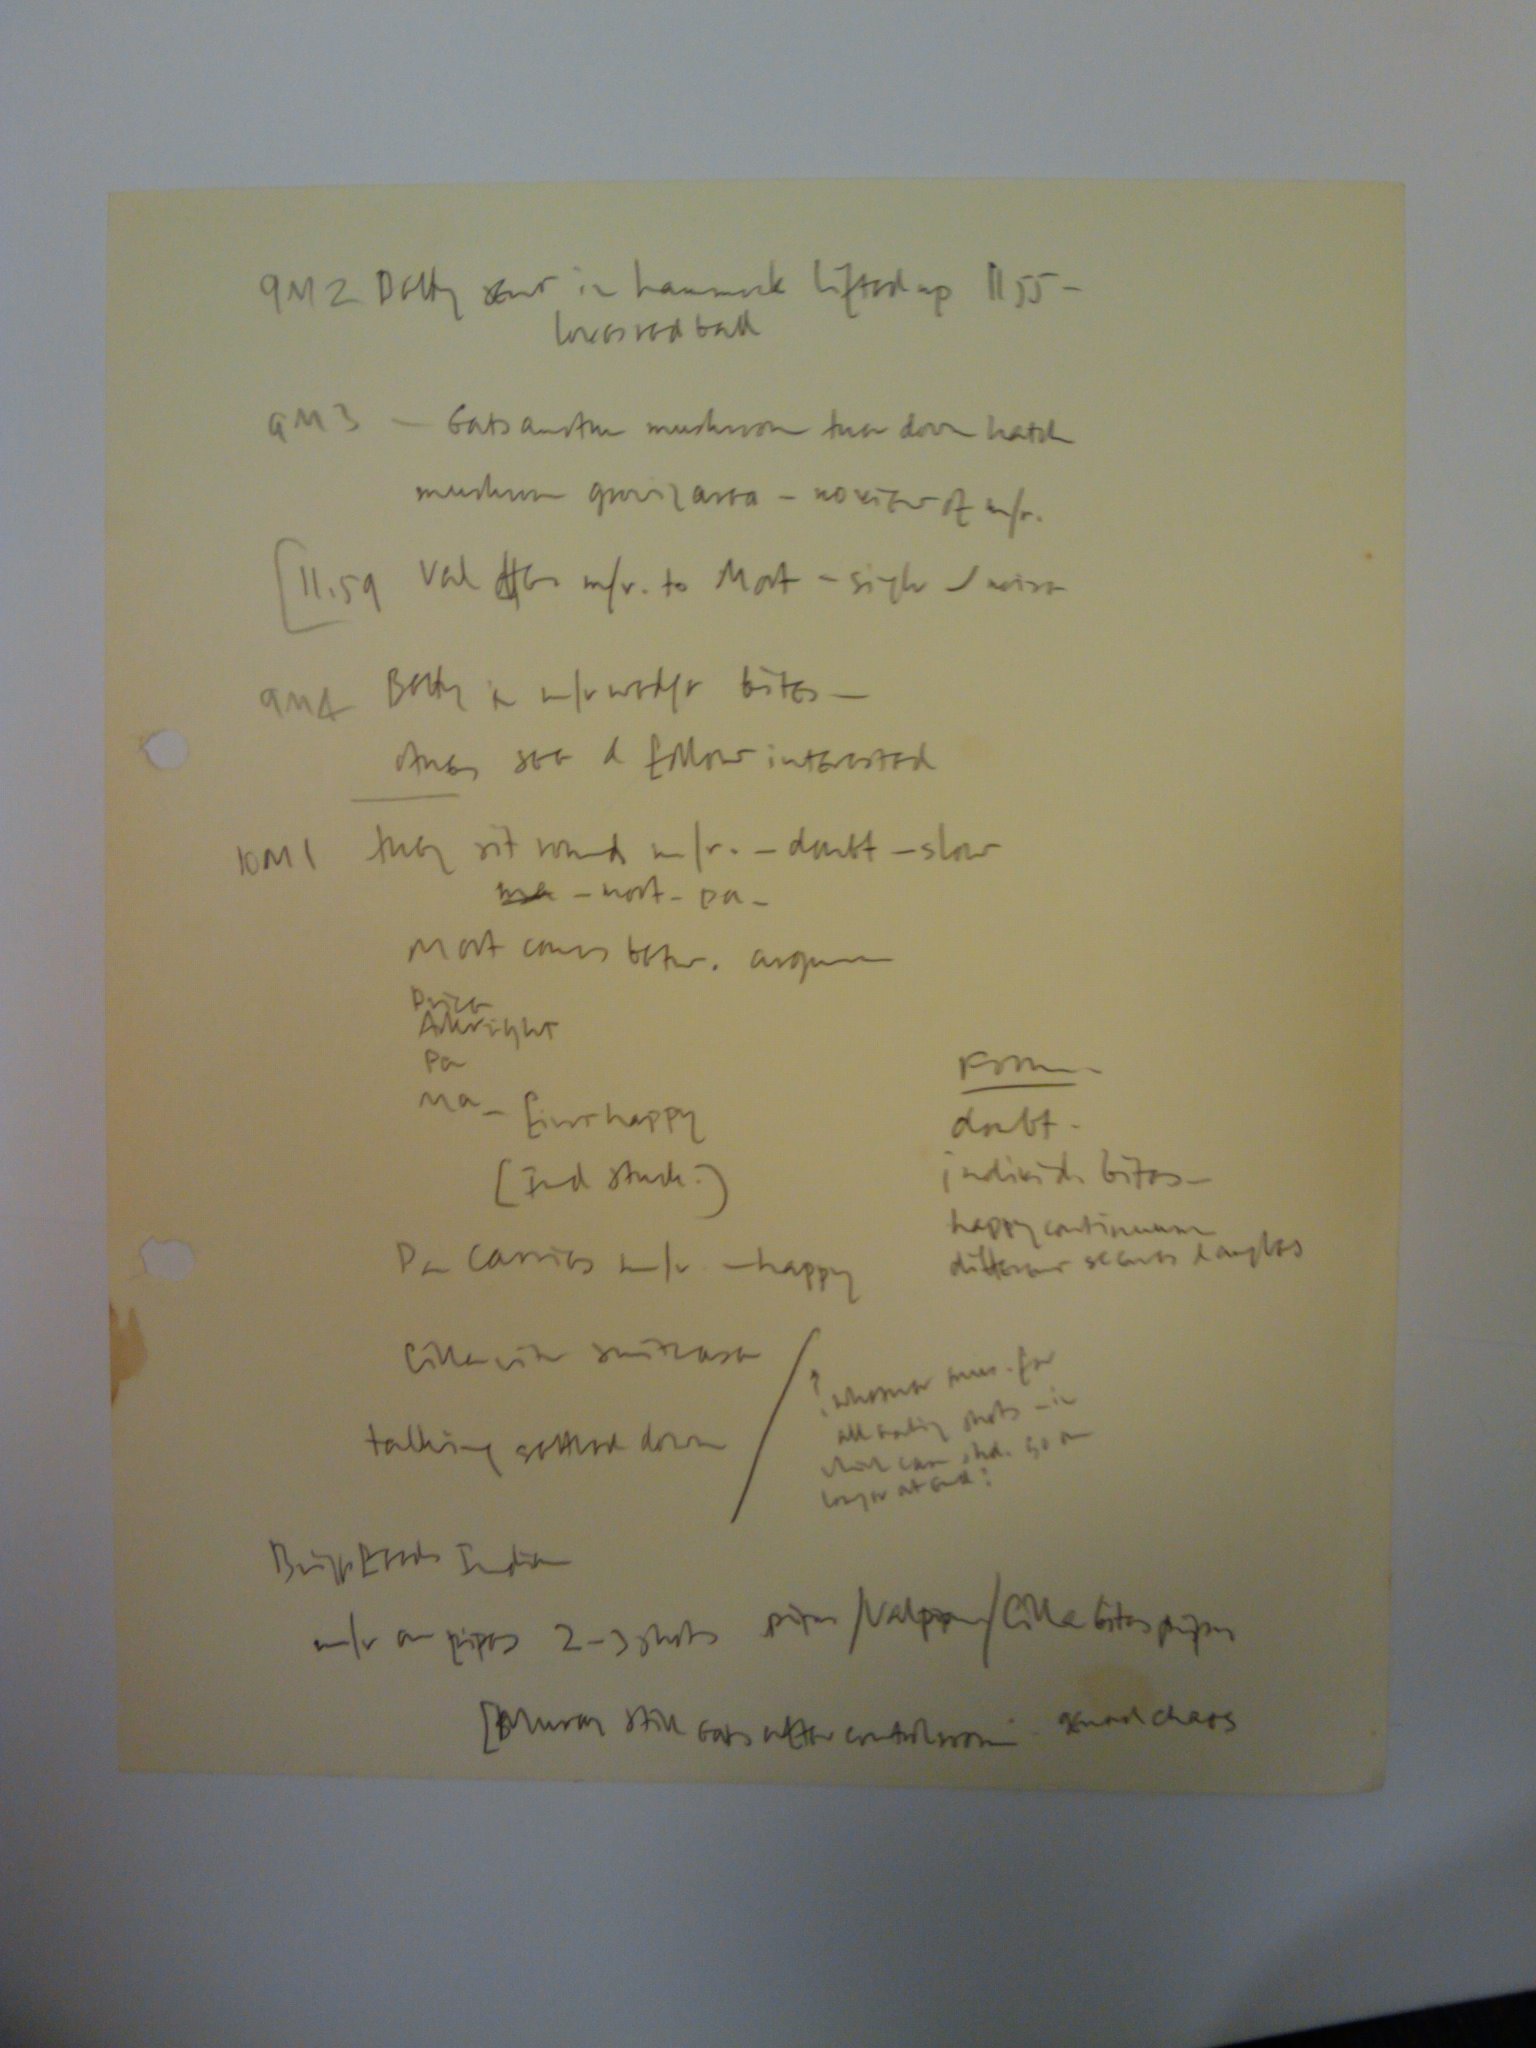 9M2 Betty sent in hammock lifted up 1155 -
loves red ball
9M3 - Eats another mushroom then down hatch
mushroom growing area - no view of m/r.
[11.59 Val m/r. to Mort - single / noise
9M4 Betty in m/r bites -
others see & follow interested
10M1 they sit round m/r. - doubt - slow
ma - mort - pa -
Mort comes betw.
Price
Allwright
Pa
Ma - first happy
(Ind stuck.)
Pa carries m/r - happy
Cilla with suitcase
talking settled down
Form -
doubt -
individ. bites -
happy continuum
different scenes & angles
? whether mus. for
all eating shots - in
which case shd. go on
longer at end?
Indian
m/r on pipes 2-3 shots pipes / Val pipes / Cilla bites pipes
[Murray still eats after control room - general chaos